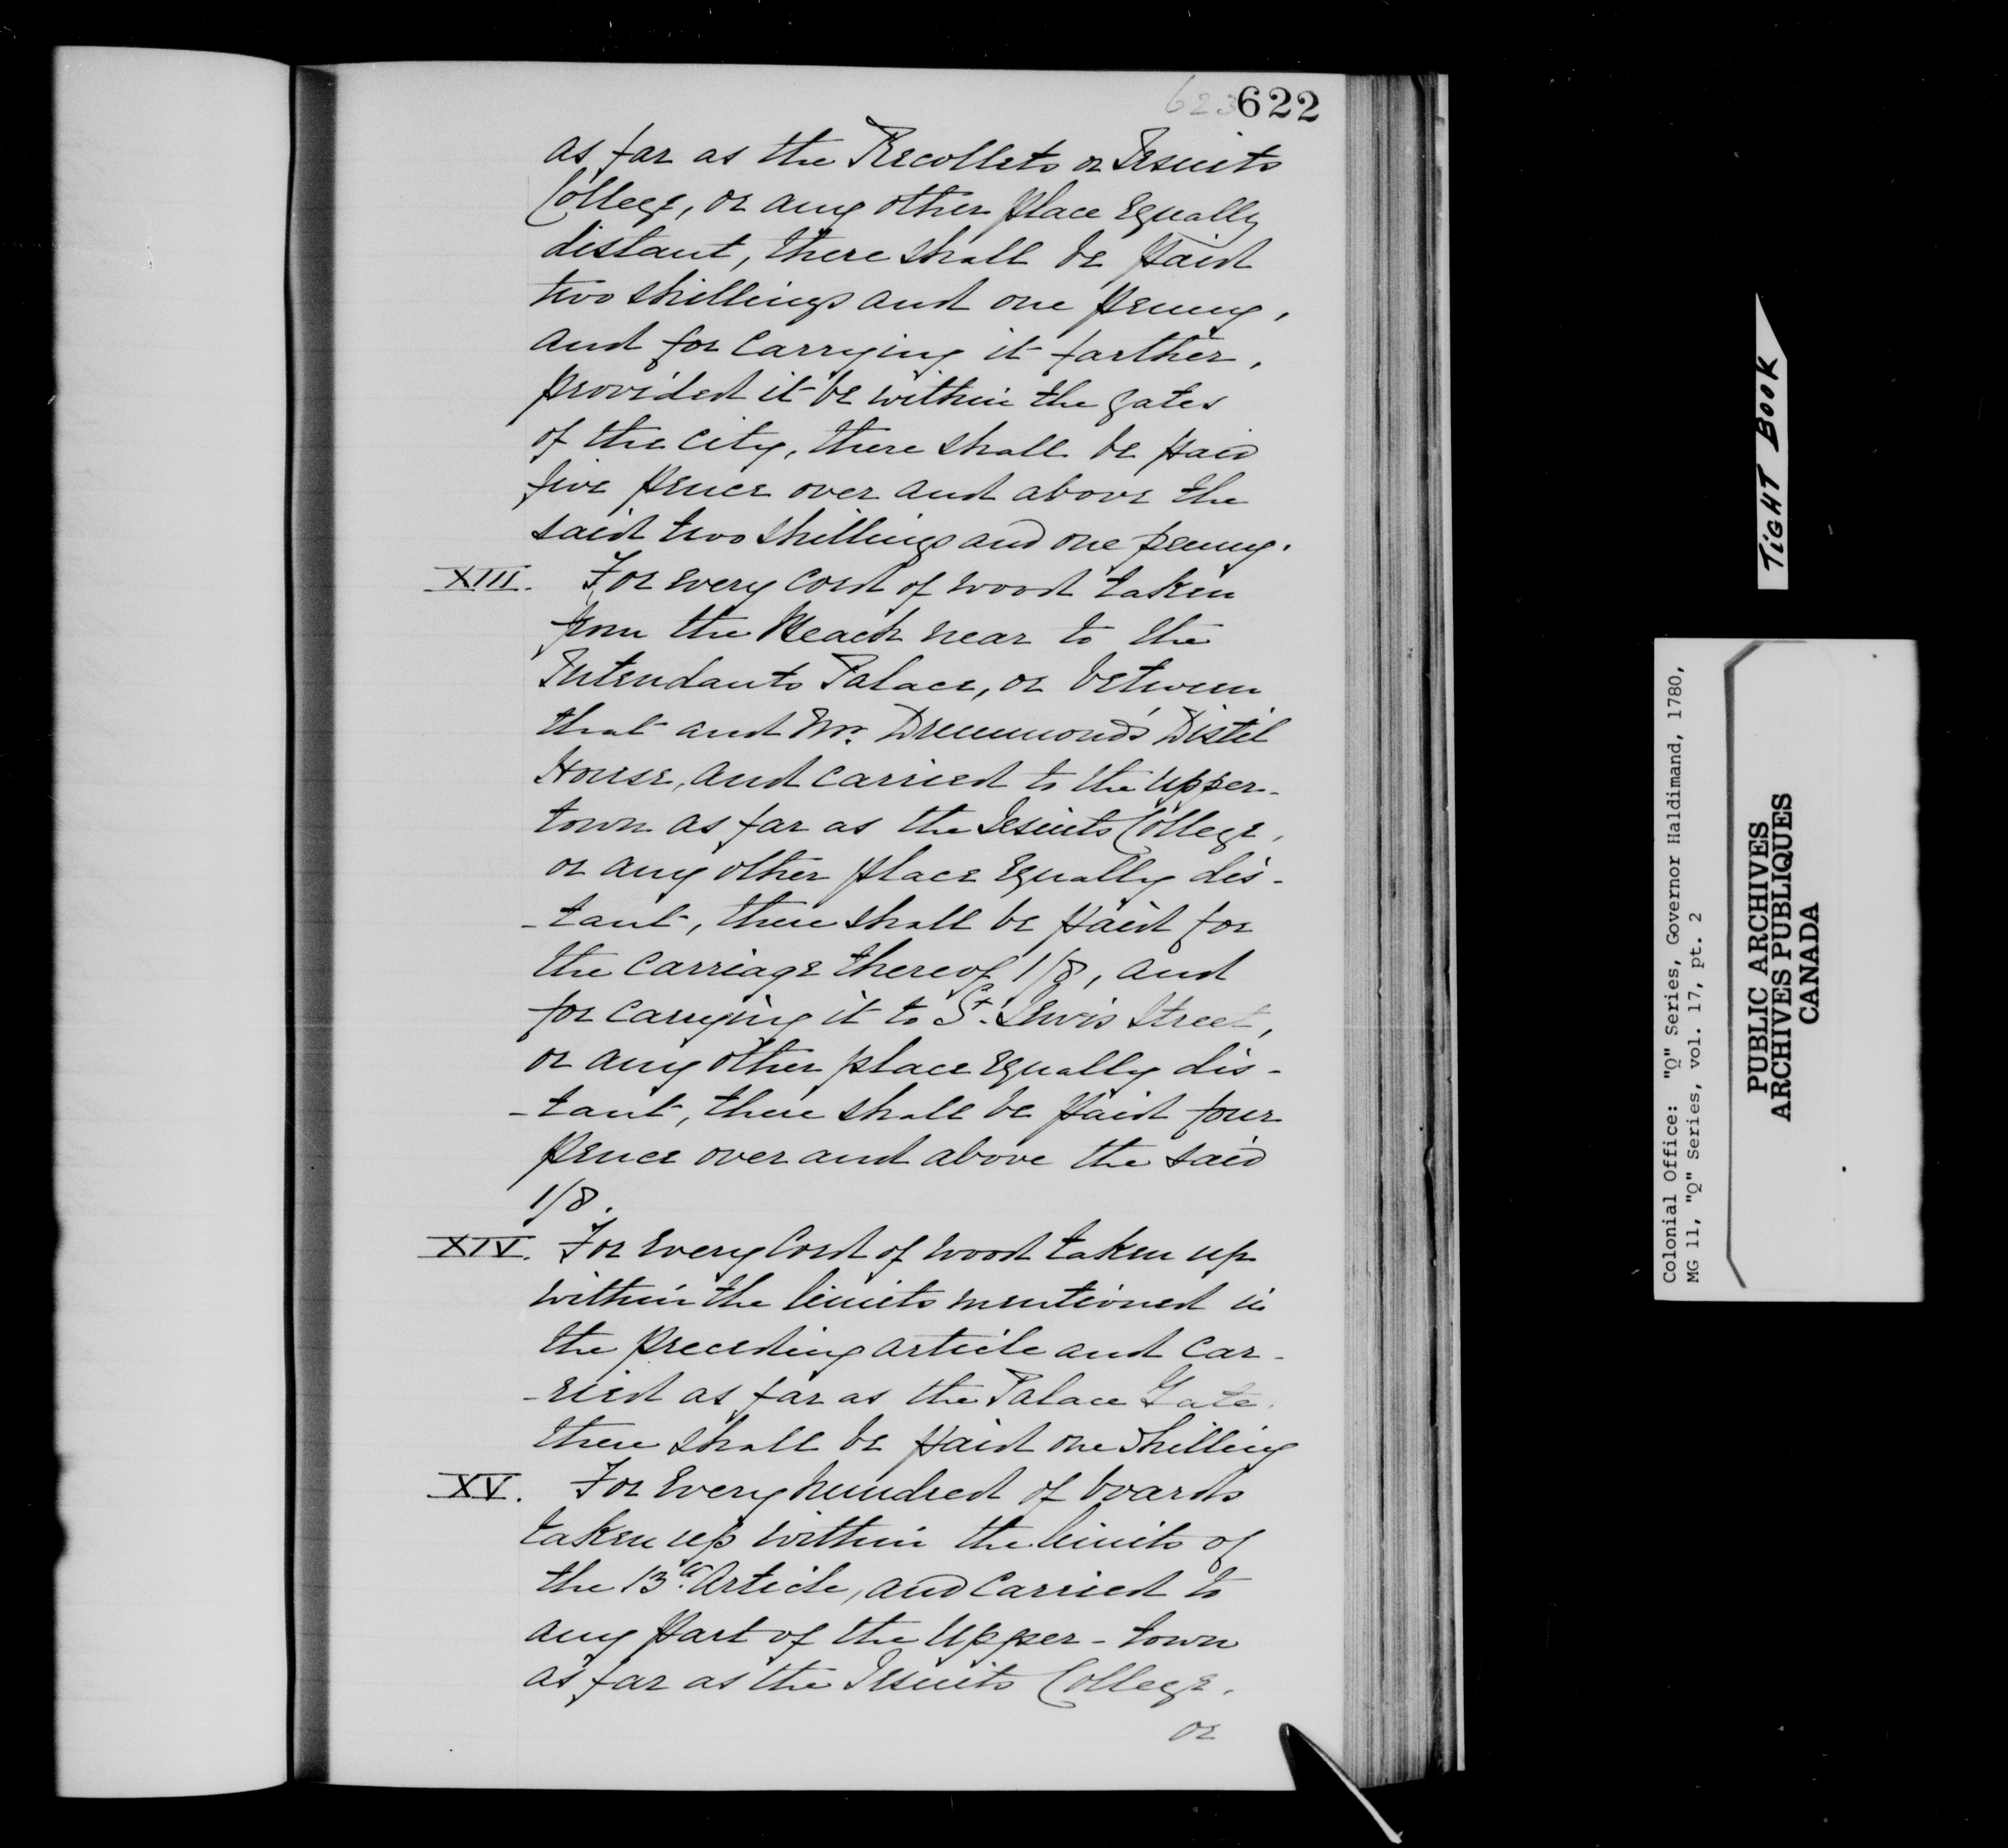 623 622
as far as the Recollets or Jesuits
College, or any other place equally
distant, there shall be paid
two shillings and one penny,
and for carrying it farther,
provided it be within the gates
of the city, there shall be paid
five pence over and above the
said two shillings and one penny.
XIII. For every cord of wood taken
from the Beach near to the
Intendants Palace, or between
that and Mr. Drummond's Distil
House, and carried to the Upper-
town as far as the Jesuits College,
or any other place equally dis-
-tant, there shall be paid for
the carriage thereof 1/8, and
for carrying it to St. Lewis Street,
or any other place equally dis-
-tant, there shall be paid four
pence over and above the said
1/8.
XIV. For every Cord of wood taken up
within the limits mentioned in
the preceding article and car-
-ried as far as the Palace Gate,
there shall be paid one shilling
XV. For every hundred of boards
taken up within the limits of
the 13th Article, and carried to
any part of the Upper-town
as far as the Jesuits College,
or
TIGHT BOOK
Colonial Office: "Q" Series, Governor Haldimand, 1780,
MG 11, "Q" Series, vol. 17, pt. 2
PUBLIC ARCHIVES
ARCHIVES PUBLIQUES
CANADA